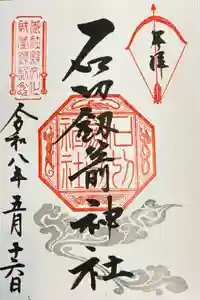 奉拝
石切劔箭神社
石切
神社
令和八年五月十六日